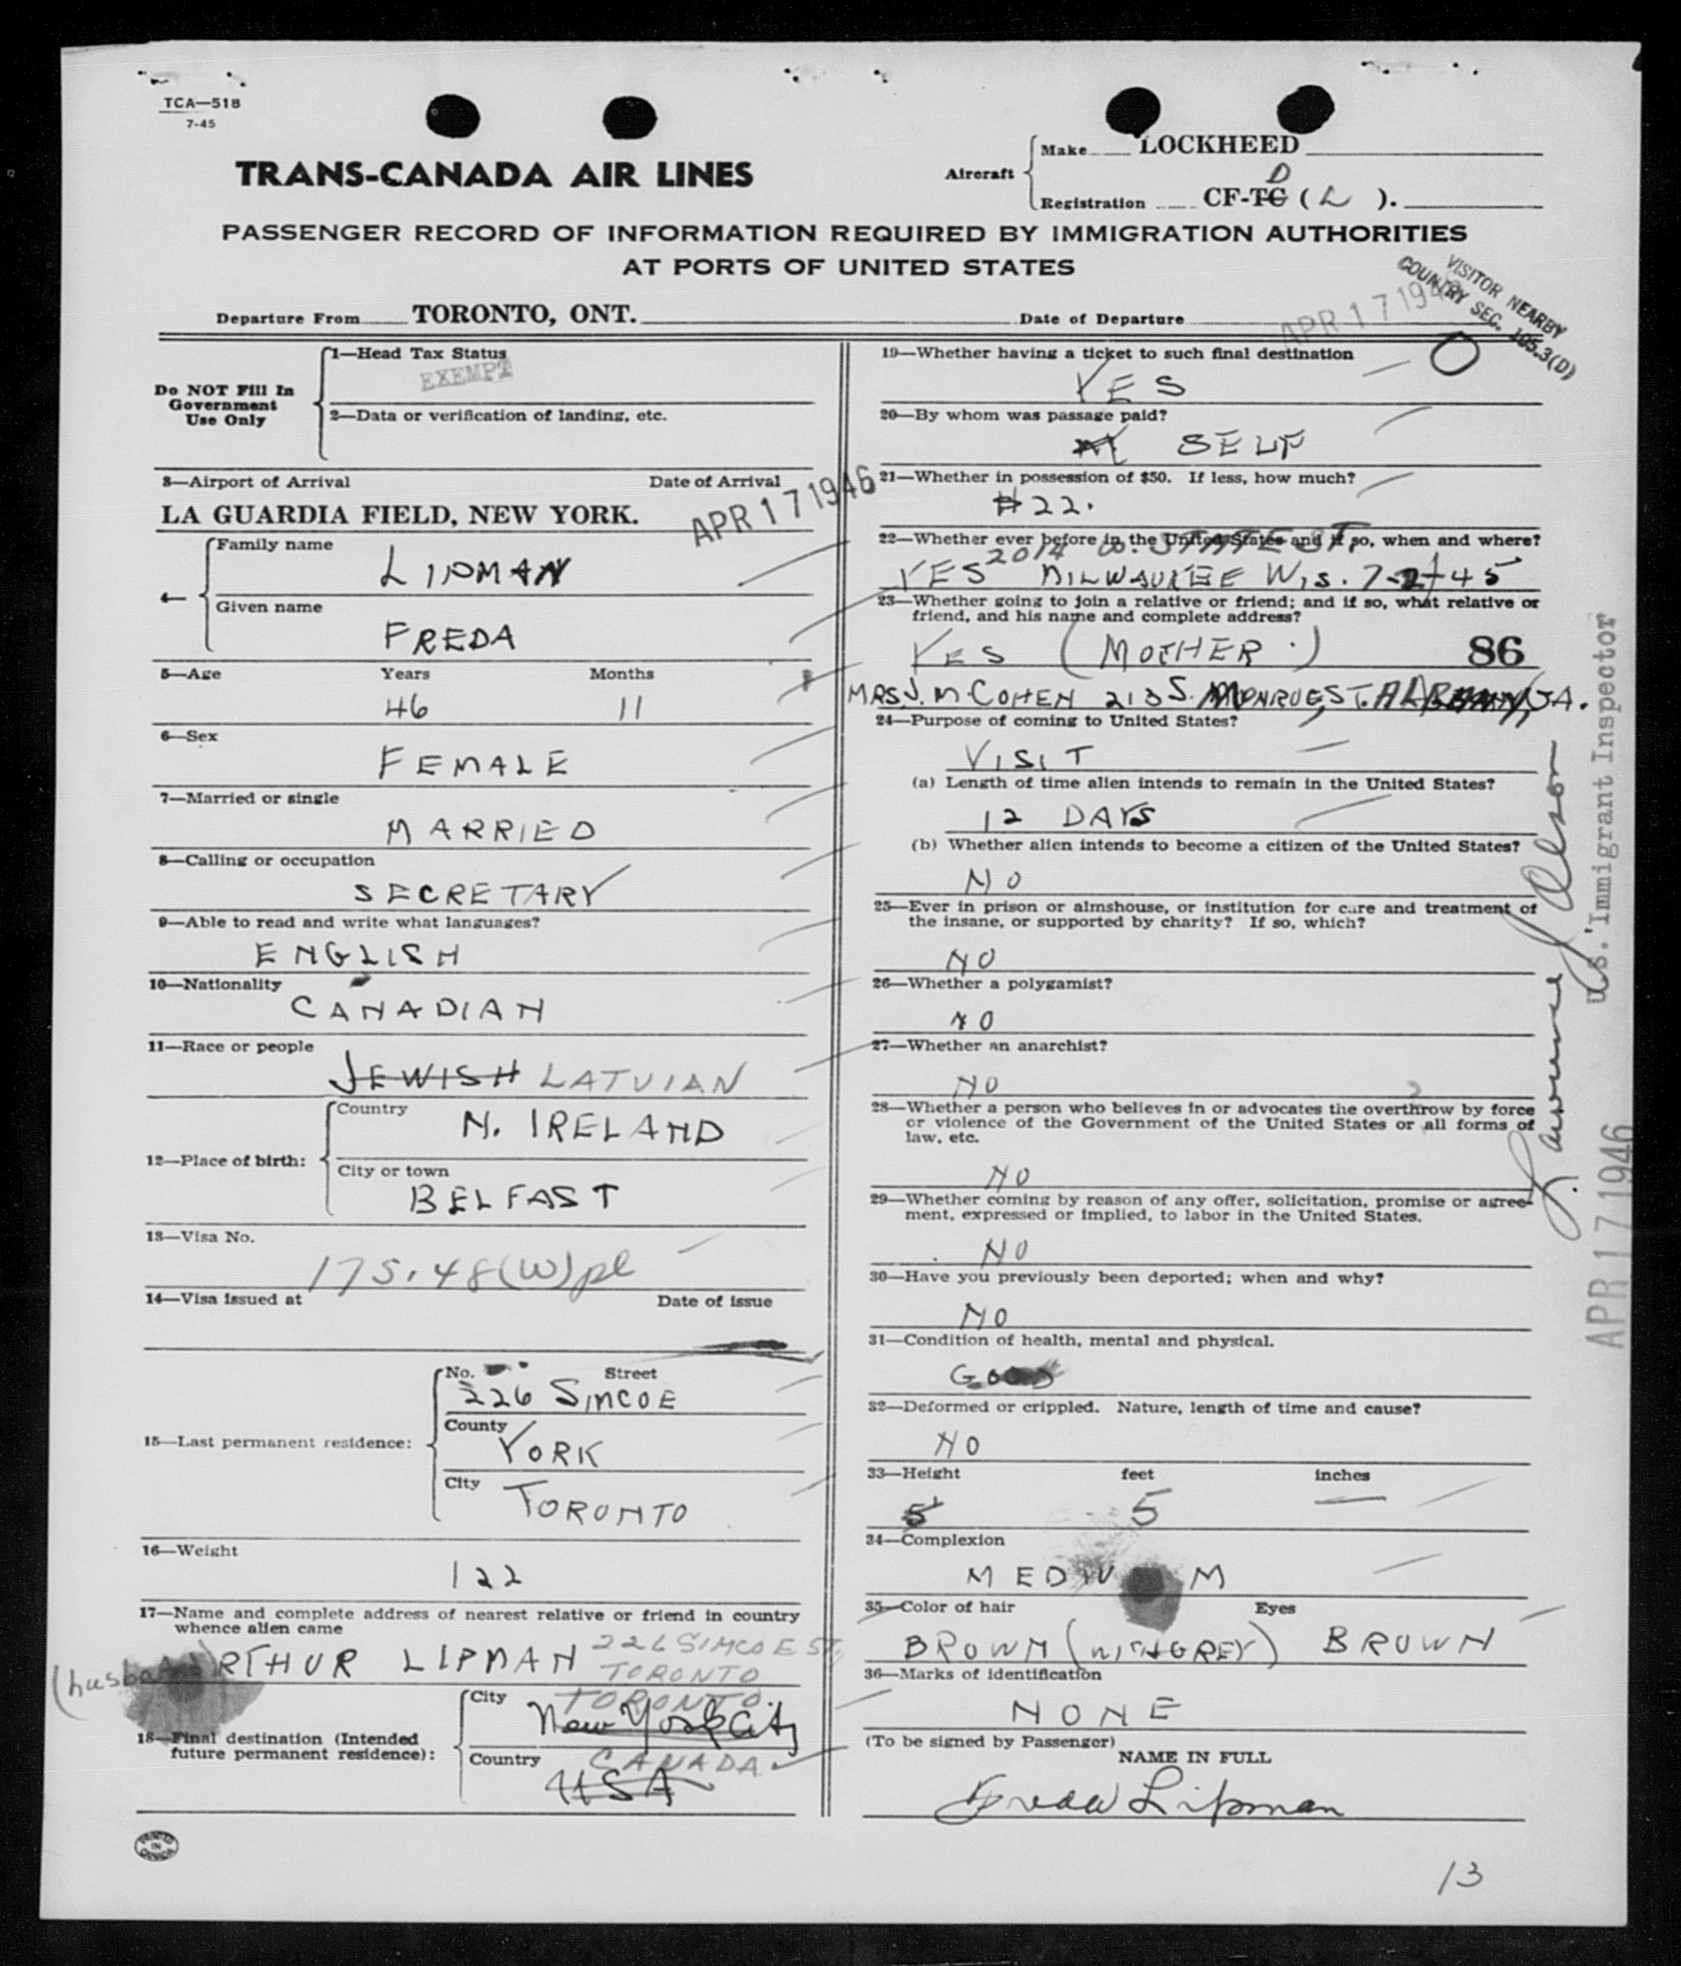 TCA—518
7-45
TRANS-CANADA AIR LINES
Aircraft
Make LOCKHEED
D
Registration CF-TC ( L ).
PASSENGER RECORD OF INFORMATION REQUIRED BY IMMIGRATION AUTHORITIES
AT PORTS OF UNITED STATES
VISITOR NEARBY
COUNTRY SEC. 105.3(D)
Departure From TORONTO, ONT.
Date of Departure APR 17 1946
Do NOT Fill In
Government
Use Only
1—Head Tax Status
EXEMPT
2—Data or verification of landing, etc.
3—Airport of Arrival Date of Arrival
LA GUARDIA FIELD, NEW YORK. APR 17 1946
4— Family name
LIPMAN
Given name
FREDA
5—Age Years Months
46 11
6—Sex
FEMALE
7—Married or single
MARRIED
8—Calling or occupation
SECRETARY
9—Able to read and write what languages?
ENGLISH
10—Nationality
CANADIAN
11—Race or people
JEWISH LATVIAN
12—Place of birth:
Country
N. IRELAND
City or town
BELFAST
13—Visa No.
175.48(W)pl
14—Visa issued at Date of issue
15—Last permanent residence:
No. Street
226 SIMCOE
County
YORK
City
TORONTO
16—Weight
122
17—Name and complete address of nearest relative or friend in country
whence alien came
(husband) ARTHUR LIPMAN 226 SIMCOE ST,
TORONTO
18—Final destination (Intended
future permanent residence):
City TORONTO.
New York City
Country CANADA
USA
PRINTED
IN
CANADA
19—Whether having a ticket to such final destination
YES
20—By whom was passage paid?
SELF
21—Whether in possession of $50. If less, how much?
$22.
22—Whether ever before in the United States and if so, when and where?
2014 W. STATE ST.
YES MILWAUKEE WIS. 7-2-45
23—Whether going to join a relative or friend; and if so, what relative or
friend, and his name and complete address?
YES (MOTHER.) 86
MRS. J. M. COHEN 213 S. MONROE ST. ALBANY, GA.
24—Purpose of coming to United States?
VISIT
(a) Length of time alien intends to remain in the United States?
12 DAYS
(b) Whether alien intends to become a citizen of the United States?
NO
25—Ever in prison or almshouse, or institution for care and treatment of
the insane, or supported by charity? If so, which?
NO
26—Whether a polygamist?
NO
27—Whether an anarchist?
NO
28—Whether a person who believes in or advocates the overthrow by force
or violence of the Government of the United States or all forms of
law, etc.
NO
29—Whether coming by reason of any offer, solicitation, promise or agree-
ment, expressed or implied, to labor in the United States.
NO
30—Have you previously been deported; when and why?
NO
31—Condition of health, mental and physical.
GOOD
32—Deformed or crippled. Nature, length of time and cause?
NO
33—Height feet inches
5' 5 —
34—Complexion
MEDIUM
35—Color of hair Eyes
BROWN (WITH GREY) BROWN
36—Marks of identification
NONE
(To be signed by Passenger)
NAME IN FULL
Freda Lipman
13
U.S. Immigrant Inspector
APR 17 1946